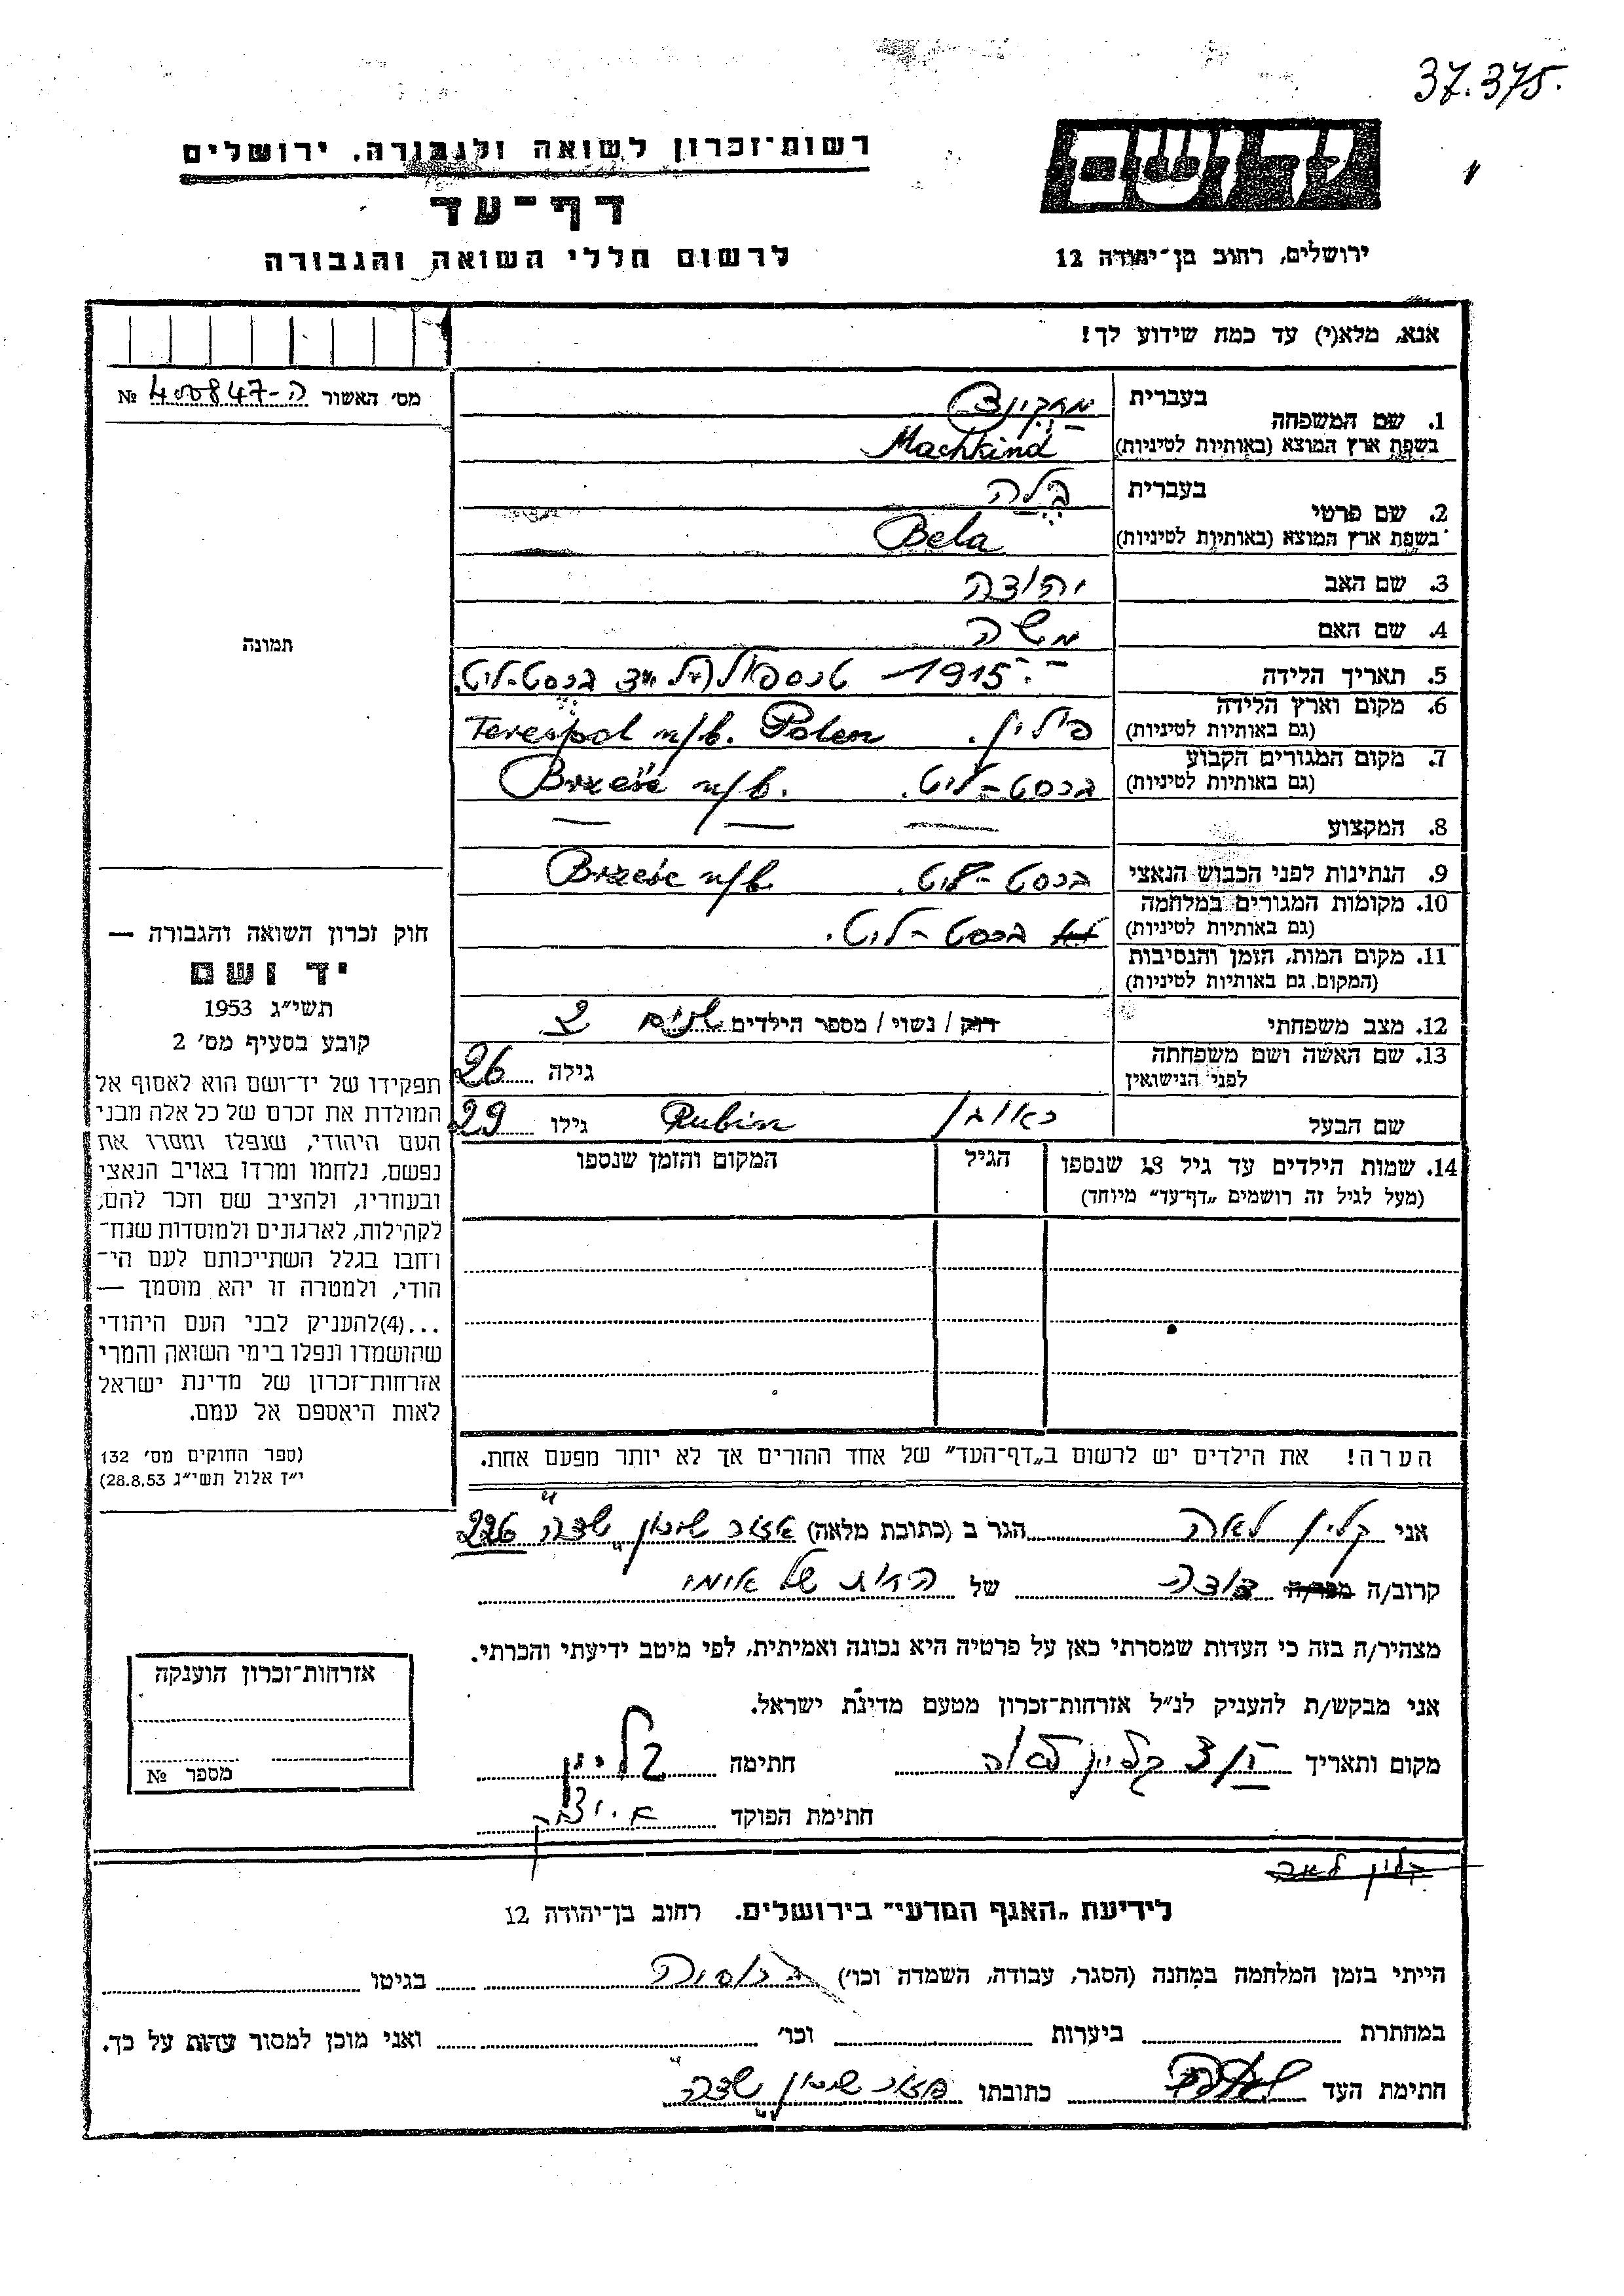 37.375.
רשות־זכרון לשואה ולגבורה, ירושלים
יד ושם
דף־עד
לרשום חללי השואה והגבורה
ירושלים, רחוב בן־יהודה 12
אנא, מלא(י) עד כמה שידוע לך!
מס׳ האשור ה-400847 №
1. שם המשפחה בעברית
בשפת ארץ המוצא (באותיות לטיניות) Machkind
2. שם פרטי בעברית בלה
בשפת ארץ המוצא (באותיות לטיניות) Bela
3. שם האב יהודה
4. שם האם משה
תמונה
5. תאריך הלידה 1915 - טרספול על יד ברסט-ליט.
6. מקום וארץ הלידה
(גם באותיות לטיניות) פולין. Terespol n/b. Polen
7. מקום המגורים הקבוע
(גם באותיות לטיניות) ברסט-ליט. Brześć n/b.
8. המקצוע — — —
9. הנתינות לפני הכבוש הנאצי ברסט-ליט. Brześć n/b.
10. מקומות המגורים במלחמה
(גם באותיות לטיניות) ברסט-ליט.
11. מקום המות, הזמן והנסיבות
(המקום, גם באותיות לטיניות)
12. מצב משפחתי רווק / נשוי / מספר הילדים שנים 2
13. שם האשה ושם משפחתה
לפני הנישואין גילה 26
שם הבעל ראובן Rubin גילו 29
14. שמות הילדים עד גיל 18 שנספו הגיל המקום והזמן שנספו
(מעל לגיל זה רושמים „דף־עד״ מיוחד)
חוק זכרון השואה והגבורה —
יד ושם
תשי״ג 1953
קובע בסעיף מס׳ 2
תפקידו של יד־ושם הוא לאסוף אל
המולדת את זכרם של כל אלה מבני
העם היהודי, שנפלו ומסרו את
נפשם, נלחמו ומרדו באויב הנאצי
ובעוזריו, ולהציב שם וזכר להם,
לקהילות, לארגונים ולמוסדות שנח־
רבו בגלל השתייכותם לעם הי־
הודי, ולמטרה זו יהא מוסמך —
...(4)להעניק לבני העם היהודי
שהושמדו ונפלו בימי השואה והמרי
אזרחות־זכרון של מדינת ישראל
לאות היאספם אל עמם.
(ספר החוקים מס׳ 132
י״ז אלול תשי״ג 28.8.53)
הערה! את הילדים יש לרשום ב„דף־העד״ של אחד ההורים אך לא יותר מפעם אחת.
אני קלין לאה הגר ב (כתובת מלאה) 226
קרוב/ה מכר/ה דודה של
מצהיר/ה בזה כי העדות שמסרתי כאן על פרטיה היא נכונה ואמיתית, לפי מיטב ידיעתי והכרתי.
אני מבקש/ת להעניק לנ״ל אזרחות־זכרון מטעם מדינת ישראל.
מקום ותאריך קליין לאה חתימה קליין
חתימת הפוקד
אזרחות־זכרון הוענקה
מספר №
קלין לאה
לידיעת „האגף המדעי״ בירושלים, רחוב בן־יהודה 12
הייתי בזמן המלחמה במחנה (הסגר, עבודה, השמדה וכו׳) ברוסיה בגיטו
במחתרת ביערות וכו׳ ואני מוכן למסור עדות על כך.
חתימת העד כתובתו